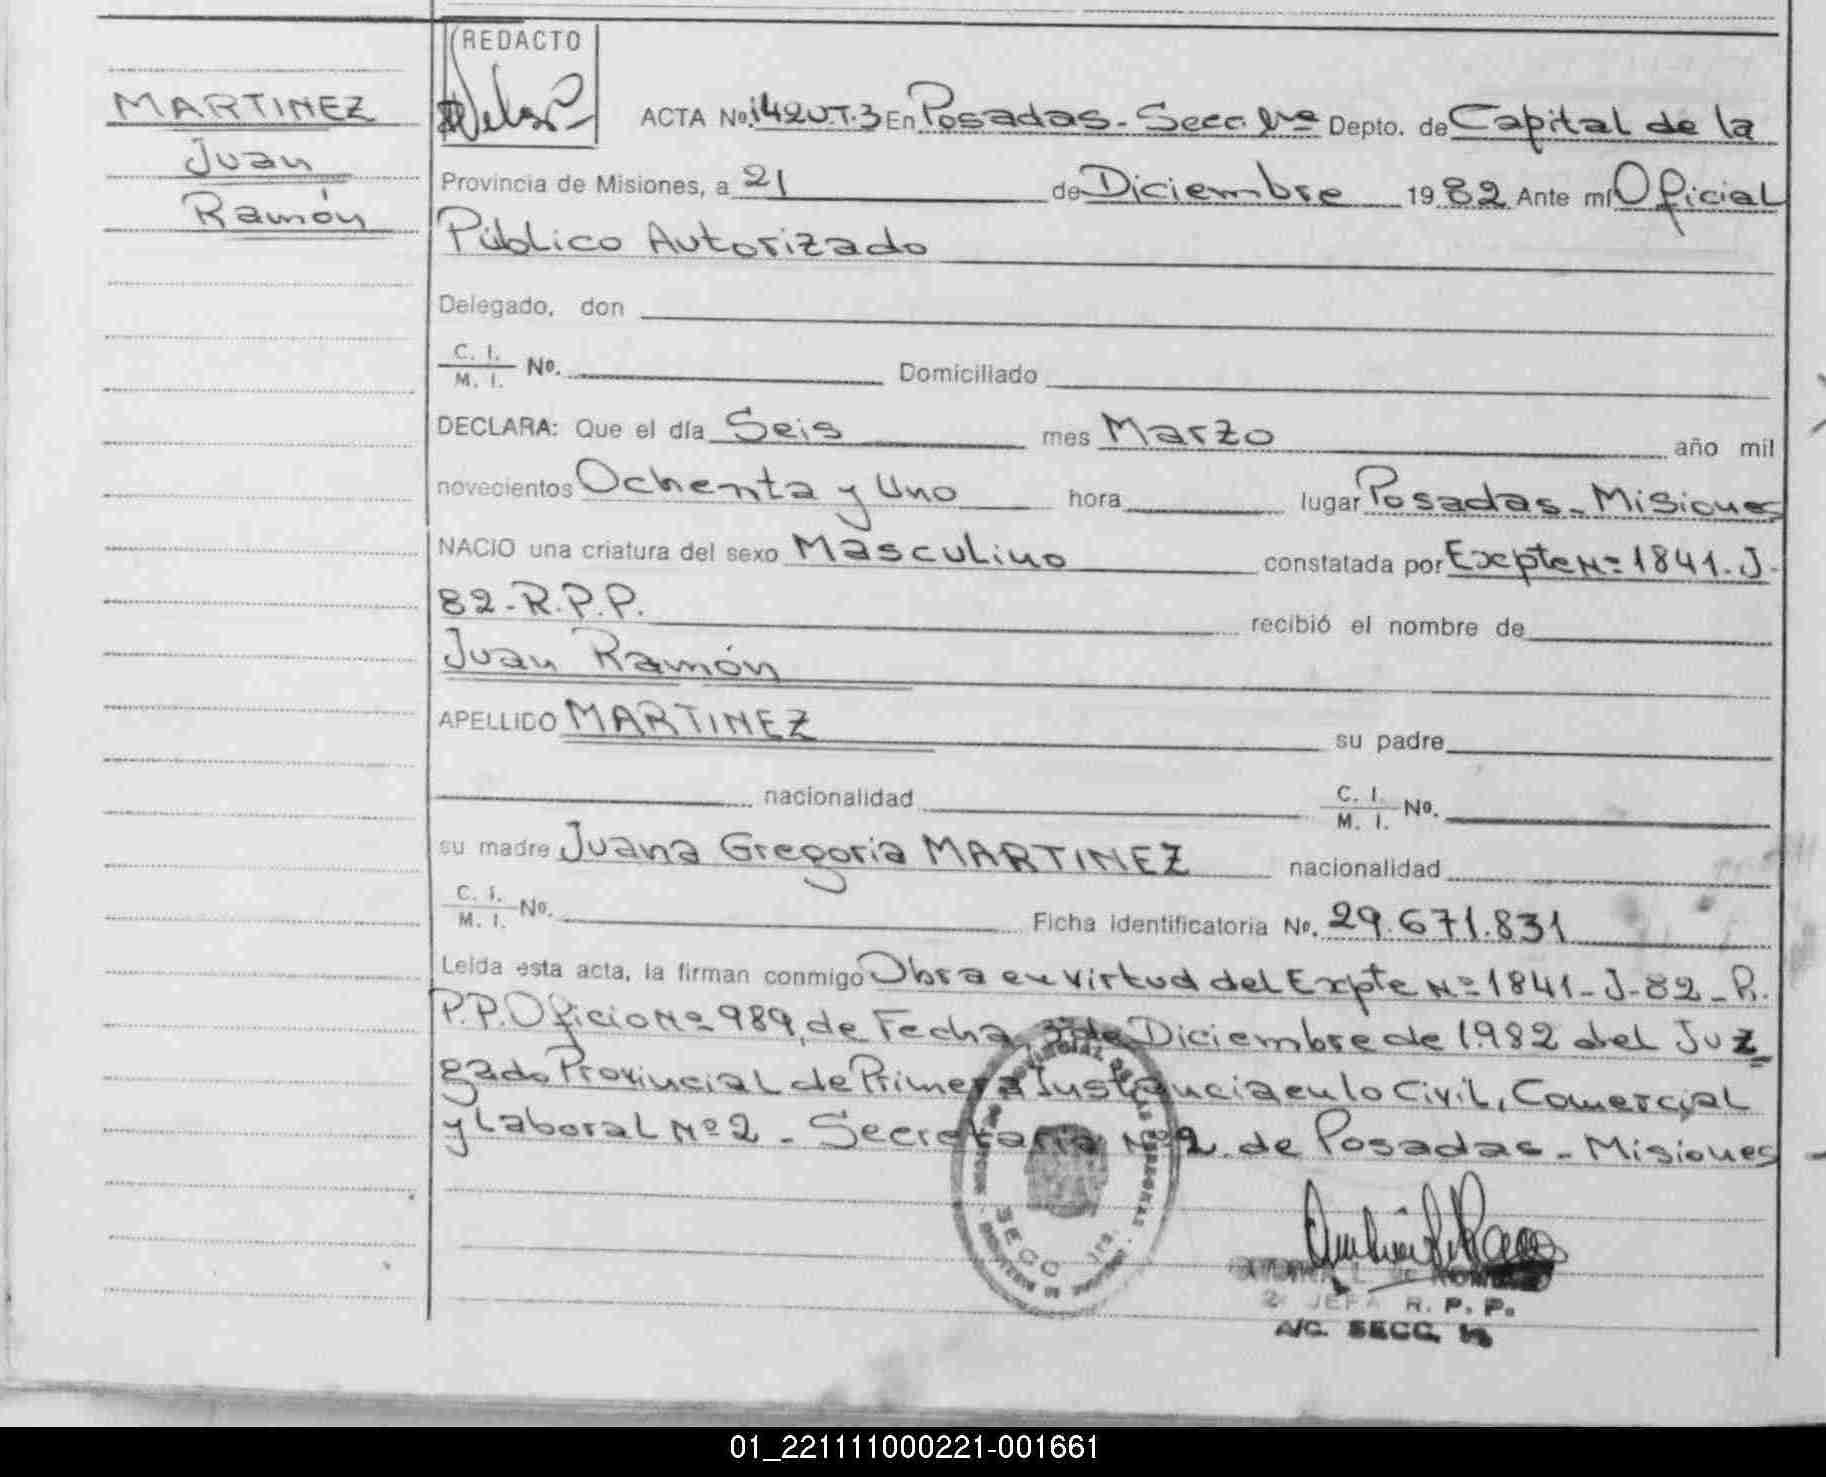 MARTINEZ
Juan
Ramón
REDACTO
ACTA No. 142UT.3 En Posadas - Secc. 1ra Depto. de Capital de la
Provincia de Misiones, a 21 de Diciembre 1982 Ante mí Oficial
Público Autorizado
Delegado, don
C. I.
M. I. No. Domiciliado
DECLARA: Que el día Seis mes Marzo año mil
novecientos Ochenta y Uno hora lugar Posadas - Misiones
NACIO una criatura del sexo Masculino constatada por Expte Nº 1841-J-
82-R.P.P. recibió el nombre de
Juan Ramón
APELLIDO MARTINEZ su padre
nacionalidad C. I.
M. I. No.
su madre Juana Gregoria MARTINEZ nacionalidad
C. I.
M. I. No. Ficha identificatoria No. 29.671.831
Leída esta acta, la firman conmigo Obra en virtud del Expte Nº 1841-J-82-R.
P.P. Oficio Nº 989, de Fecha, 3 de Diciembre de 1982 del Juz
gado Provincial de Primera Instancia en lo Civil, Comercial
y Laboral Nº 2 - Secretaría Nº 2 de Posadas - Misiones -
SECC. 1ra.
2º JEFA R. P. P.
A/C. SECC. 1ª
01_221111000221-001661